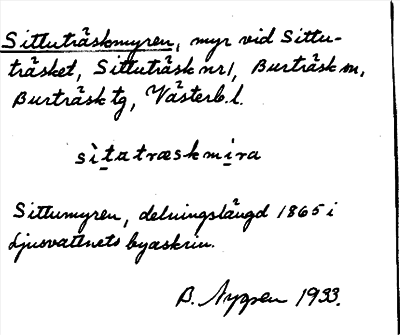 Sittuträskmyren, myr vid Sittu-
träsket, Sittuträsk nr 1, Burträsk sn,
Burträsk tg, Västerb. l.
sìtatræskmira
Sittumyren, delningslängd 1865 i
Ljusvattnets byaskrin.
B. Nygren 1933.